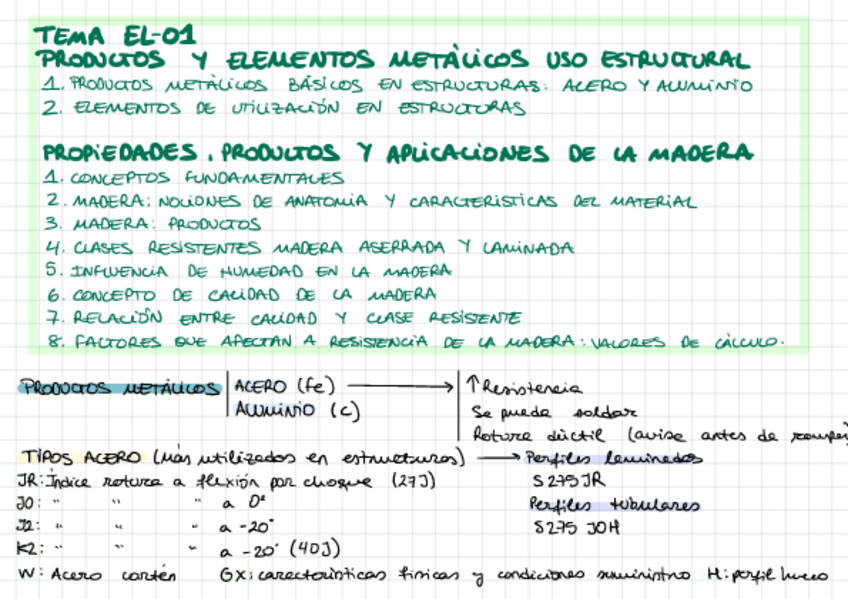 TEMA EL-01
PRODUCTOS Y ELEMENTOS METÁLICOS USO ESTRUCTURAL
1. PRODUCTOS METÁLICOS BÁSICOS EN ESTRUCTURAS: ACERO Y ALUMINIO
2. ELEMENTOS DE UTILIZACIÓN EN ESTRUCTURAS
PROPIEDADES, PRODUCTOS Y APLICACIONES DE LA MADERA
1. CONCEPTOS FUNDAMENTALES
2. MADERA: NOCIONES DE ANATOMIA Y CARACTERISTICAS DEL MATERIAL
3. MADERA: PRODUCTOS
4. CLASES RESISTENTES MADERA ASERRADA Y LAMINADA
5. INFLUENCIA DE HUMEDAD EN LA MADERA
6. CONCEPTO DE CALIDAD DE LA MADERA
7. RELACIÓN ENTRE CALIDAD Y CLASE RESISTENTE
8. FACTORES QUE AFECTAN A RESISTENCIA DE LA MADERA: VALORES DE CÁLCULO.
PRODUCTOS METÁLICOS ACERO (Fe) → ↑ Resistencia
ALUMINIO (C) Se puede soldar
Rotura dúctil (avisa antes de romper)
TIPOS ACERO (Más utilizados en estructuras) → Perfiles laminados
JR: Índice rotura a flexión por choque (27J) S275JR
J0: " " " a 0° Perfiles tubulares
J2: " " " a -20° S275 J0H
K2: " " " a -20° (40J)
W: Acero cortén GX: características físicas y condiciones suministro H: perfil hueco